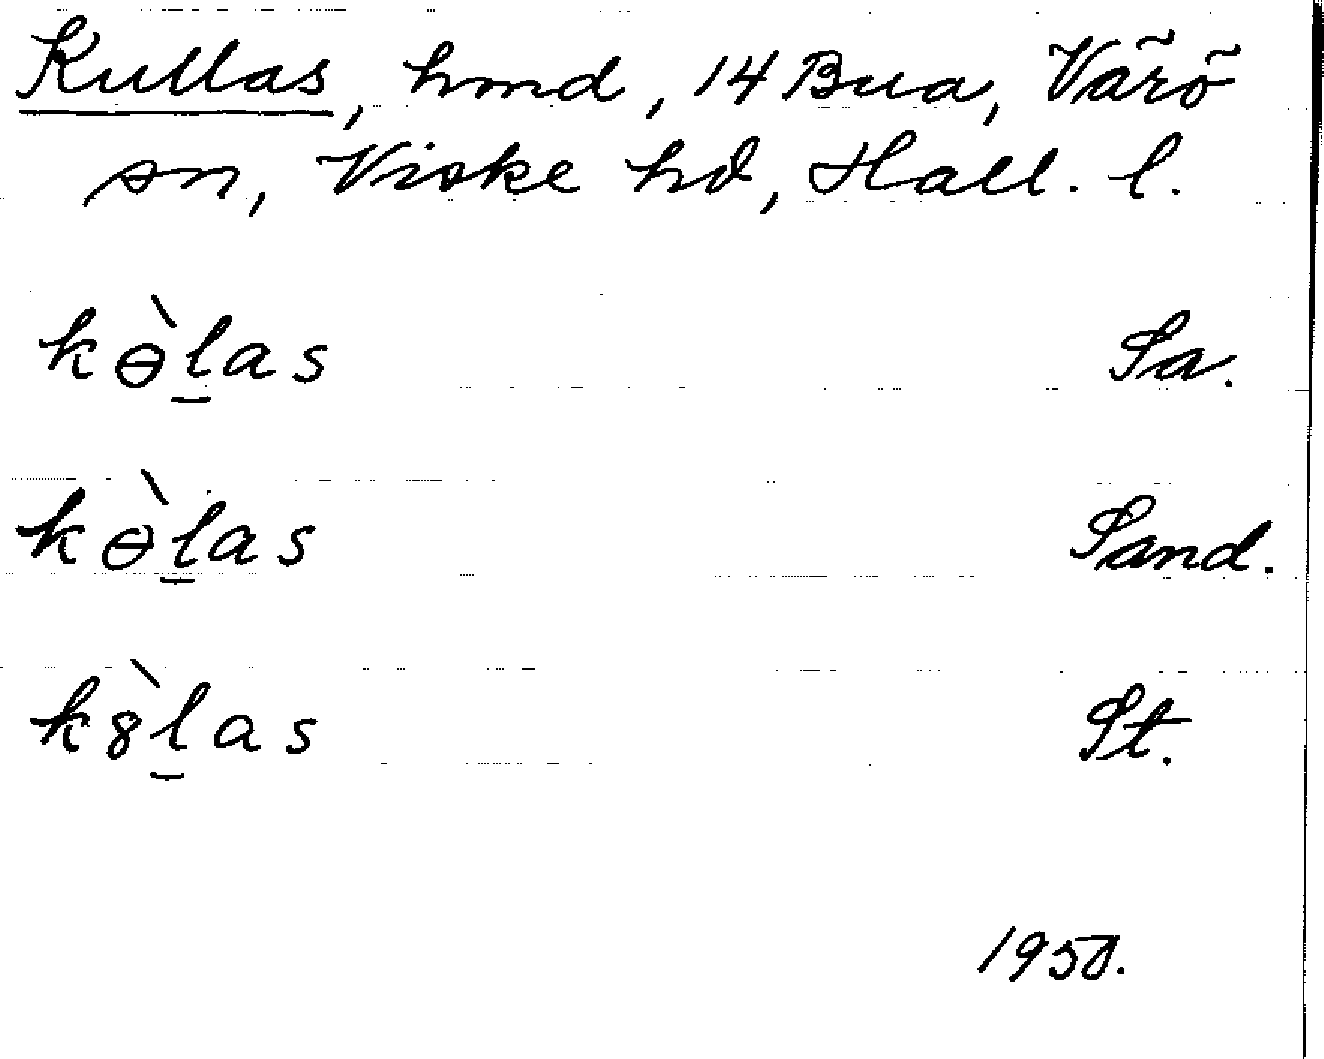 Kullas, hmd, 14 Bua, Värö
sn, Viske hd, Hall. l.
kɵ̀l̲as Sa.
kɵ̀l̲as Sand.
k8̀l̲as St.
1950.